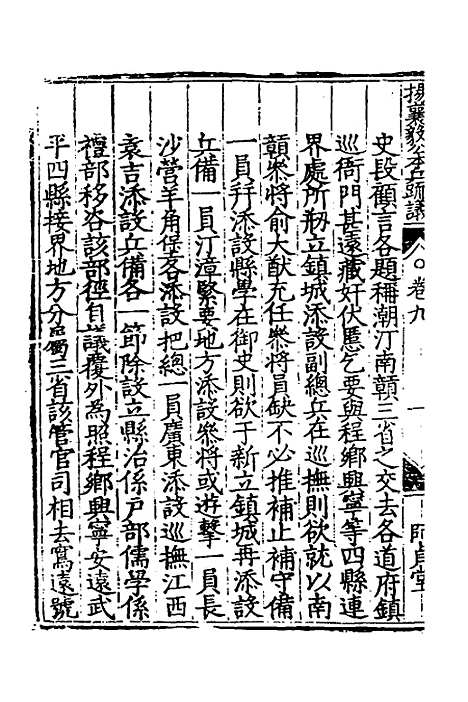 楊襄毅公本兵疏議
卷九
一
師貞堂
史段顧言各題稱潮汀南贛三省之交去各道府鎮
巡衙門甚遠藏奸伏慝乞要與程鄉興寧等四縣連
界處所剏立鎮城添設副總兵在巡撫則欲就以南
贛叅將俞大猷充任叅將員缺不必推補止補守備
一員幷添設縣學在御史則欲于新立鎮城再添設
兵備一員汀漳緊要地方添設叅將或遊擊一員長
沙營羊角堡各添設把總一員廣東添設巡撫江西
袁吉添設兵備各一節除設立縣治係戶部儒學係
禮部移咨該部徑自議覆外為照程鄉興寧安遠武
平四縣接界地方分屬三省該管官司相去寫遠號